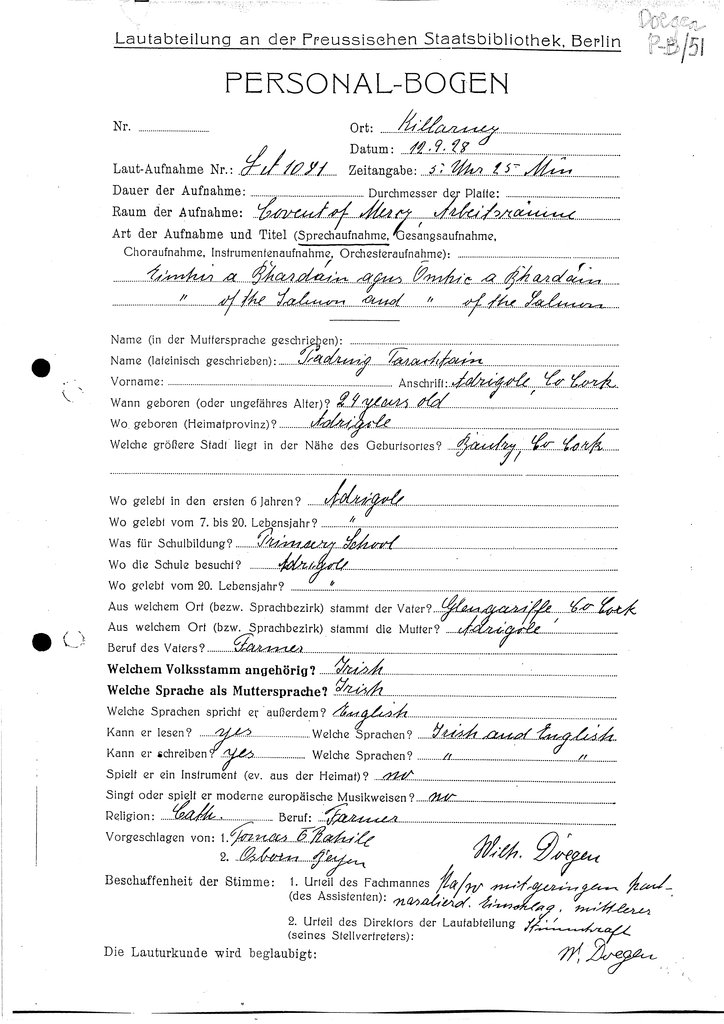 Doegen
P-B/51
Lautabteilung an der Preussischen Staatsbibliothek, Berlin
PERSONAL-BOGEN
Nr.
Ort: Killarney
Datum: 12.9.28
Laut-Aufnahme Nr.: Zeitangabe: 5 Uhr 25 Min
Dauer der Aufnahme: Durchmesser der Platte:
Raum der Aufnahme: Covent of Mercy, Arbeitsräume
Art der Aufnahme und Titel (Sprechaufnahme, Gesangsaufnahme,
Choraufnahme, Instrumentenaufnahme, Orchesteraufnahme):
a Bhardáin agus a Bhardáin
" of the Salmon and " of the Salmon
Name (in der Muttersprache geschrieben):
Name (lateinisch geschrieben): Pádruig
Vorname: Anschrift: Adrigole, Co Cork
Wann geboren (oder ungefähres Alter)? 24 years old
Wo geboren (Heimatprovinz)? Adrigole
Welche größere Stadt liegt in der Nähe des Geburtsortes? Bantry, Co Cork
Wo gelebt in den ersten 6 Jahren? Adrigole
Wo gelebt vom 7. bis 20. Lebensjahr? "
Was für Schulbildung? Primary School
Wo die Schule besucht? Adrigole
Wo gelebt vom 20. Lebensjahr? "
Aus welchem Ort (bezw. Sprachbezirk) stammt der Vater? Glengariffe, Co Cork
Aus welchem Ort (bzw. Sprachbezirk) stammt die Mutter? Adrigole
Beruf des Vaters? Farmer
Welchem Volksstamm angehörig? Irish
Welche Sprache als Muttersprache? Irish
Welche Sprachen spricht er außerdem? English
Kann er lesen? yes Welche Sprachen? Irish and English
Kann er schreiben? yes Welche Sprachen? " "
Spielt er ein Instrument (ev. aus der Heimat)? no
Singt oder spielt er moderne europäische Musikweisen? no
Religion: Cath. Beruf: Farmer
Vorgeschlagen von: 1. Tomas O Rahille
2. Osborn Bergin
Wilh. Doegen
Beschaffenheit der Stimme: 1. Urteil des Fachmannes mit geringem
(des Assistenten): nasalierd. Einschlag, mittlerer
2. Urteil des Direktors der Lautabteilung Stimmkraft
(seines Stellvertreters):
W. Doegen
Die Lauturkunde wird beglaubigt: